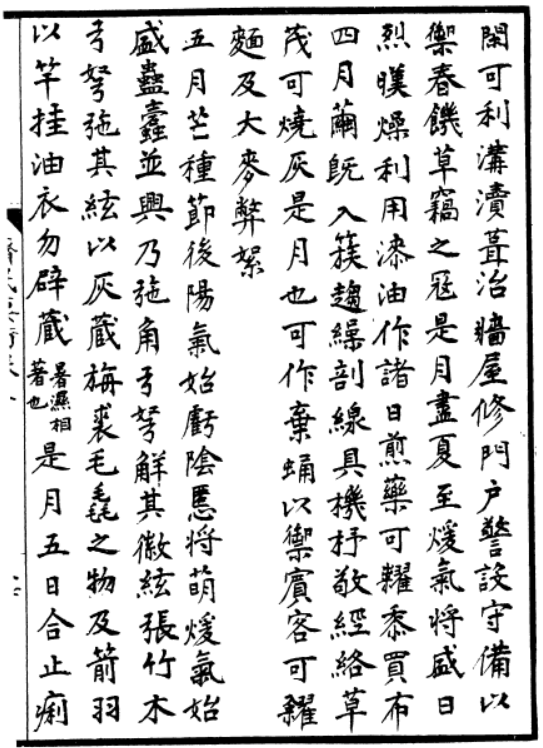 閑可利溝瀆葺治牆屋修門户警設守備以
禦春饑草竊之冦是月盡夏至煖氣將盛日
烈暵燥利用漆油作諸日煎藥可糶黍買布
四月繭旣入簇趨繰剖線具機杼敬經絡草
茂可燒灰是月也可作棗蛹以禦賓客可糴
麵及大麥弊絮
五月芒種節後陽氣始虧陰慝將萌煖氣始
盛蠱蠹並興乃弛角弓弩解其徽絃張竹木
弓弩弛其絃以灰藏旃裘毛毳之物及箭羽
以竿挂油衣勿辟藏暑濕相著也是月五日合止痢